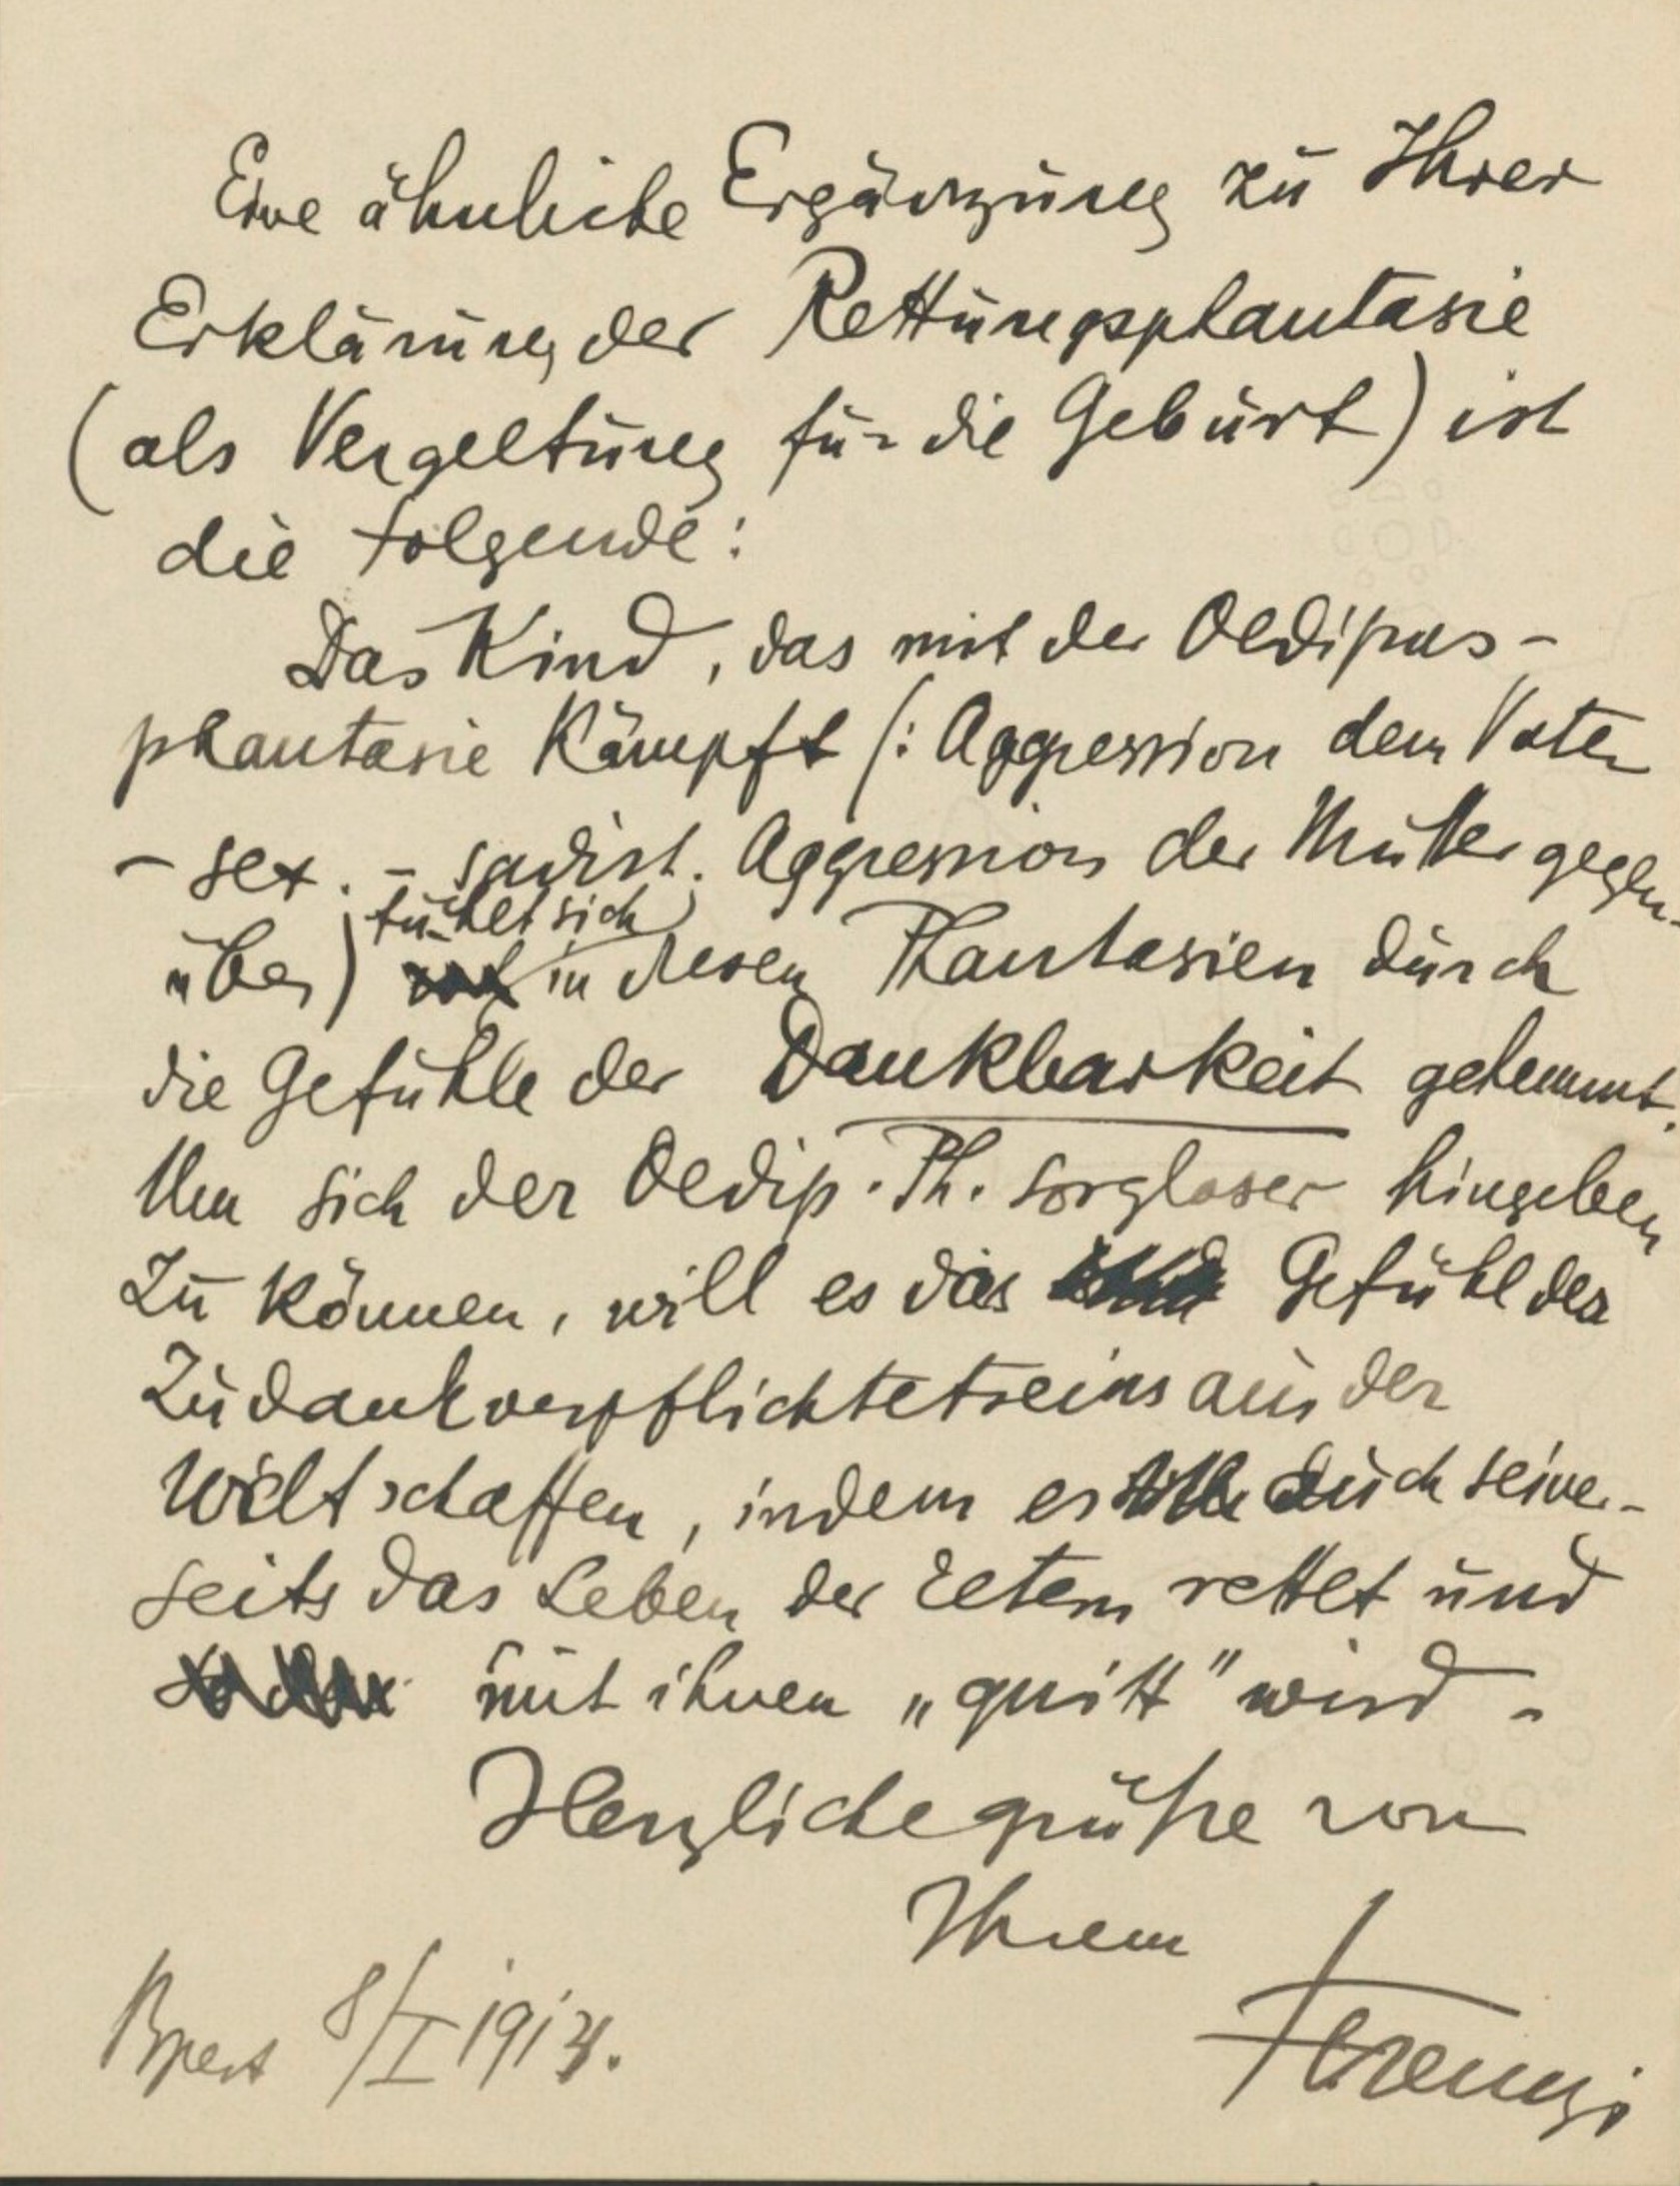 Eine ähnliche Ergänzung zu Ihrer
Erklärung der Rettungsphantasie
(als Vergeltung für die Geburt) ist
die folgende:
Das Kind, das mit der Oedipus-
phantasie kämpft (: Aggression dem Vater
- sex. - sadist. Aggression der Mutter gegen-
über) fühlt sich in diesen Phantasien durch
die Gefühle der Dankbarkeit gehemmt.
Um sich der Oedip. Ph. sorgloser hingeben
zu können, will es das Gefühl des
Zudankverpflichtetseins aus der
Welt schaffen, indem es auch seiner-
seits das Leben der Eltern rettet und
mit ihnen „quitt" wird.
Herzliche grüße von
Ihrem
Ferenczi
Bpest 8/I 1913.